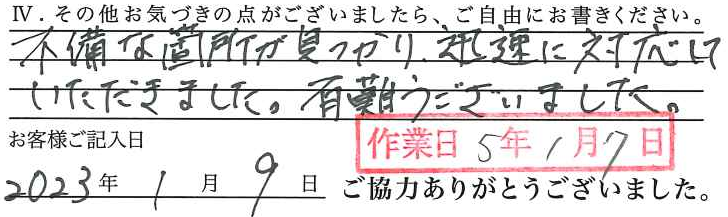 Ⅳ.その他お気づきの点がございましたら、ご自由にお書きください。
不備な箇所が見つかり、迅速に対応して
いただきました。有難うございました。
お客様ご記入日
作業日 5年 1月7日
2023年 1月 9日 ご協力ありがとうございました。